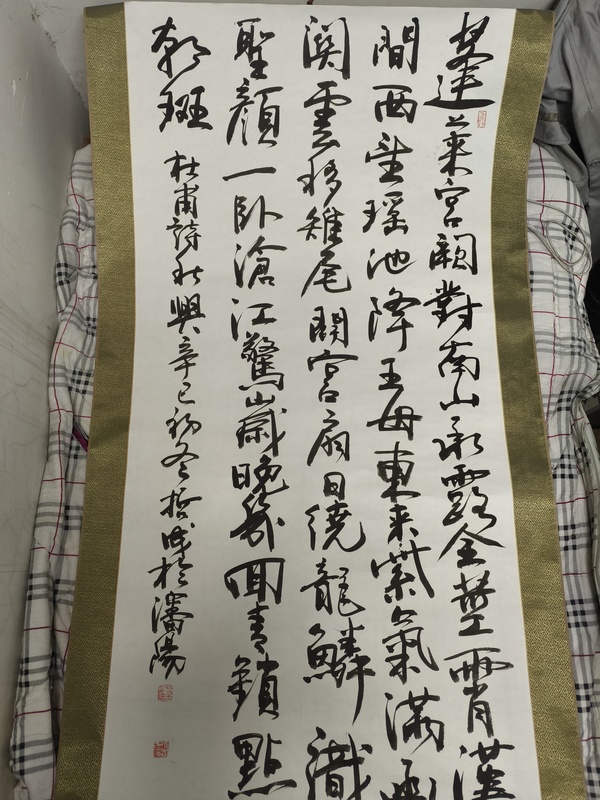 蓬萊宮闕對南山承露金莖霄漢
間西望瑶池降王母東来紫氣滿函
関雲移雉尾開宮扇日繞龍鱗識
聖顔一卧滄江驚嵗晚幾回青鎖點
朝班
杜甫詩秋興辛巳初冬於瀋陽